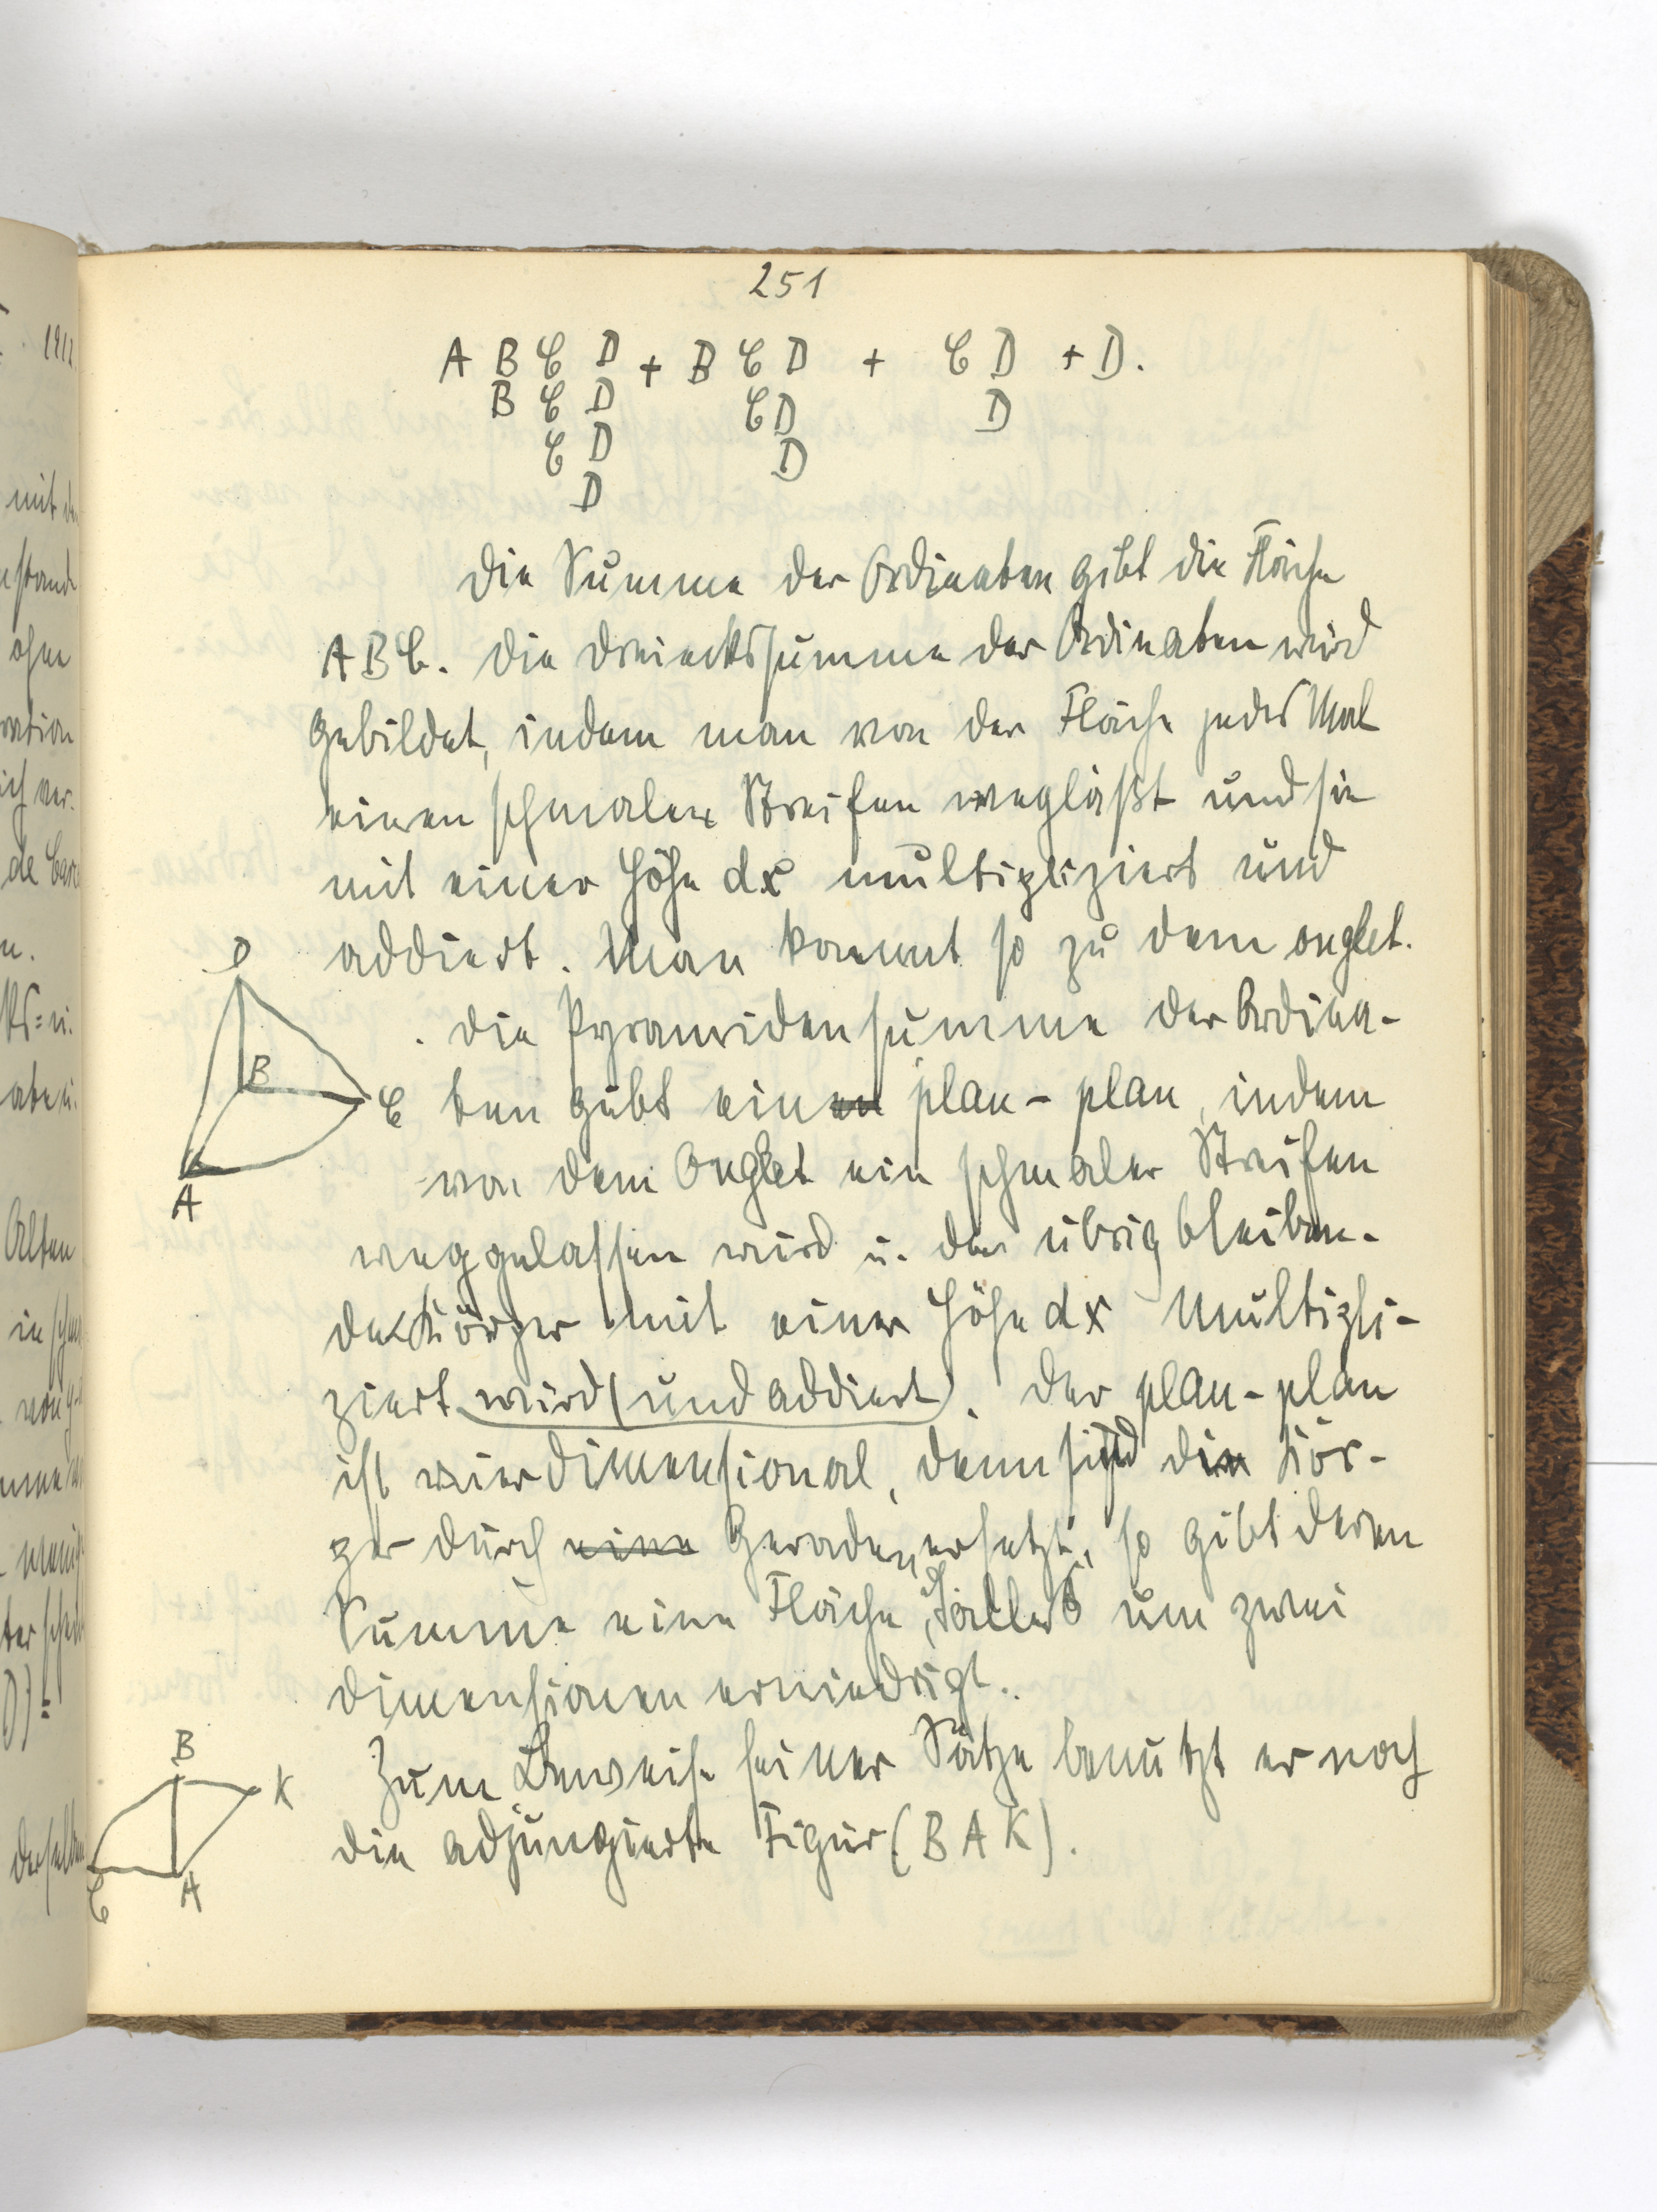 251
A B C D + B C D + C D + D.
B C D C D D
C D D
D
Die Summe der Ordinaten gibt die Fläche
A B C. Die Dreieckssumme der Ordinaten wird
gebildet, indem man von der Fläche jedes Mal
einen schmalen Streifen wegläßt und sie
mit einer Höhe dx multipliziert und
addiert. Man kommt so zu dem onglet.
Die Pyramidensumme der Ordina-
ten gibt einen plan-plan, indem
von dem Onglet ein schmaler Streifen
weggelassen wird u. der übrig bleiben-
de Körper mit einer Höhe dx multipli-
ziert wird (und addiert). Der plan-plan
ist vierdimensional, denn sind die Kör-
per durch eine Geraden ersetzt, so gibt deren
Summe eine Fläche, um zwei
Dimensionen erniedrigt.
Zum Beweise seiner Sätze benutzt er noch
die adjungierte Figur (B A K).
D
B
C
A
B
K
C
A
1912
mit
stand
ohne
ration
ich ver-
de Carc
n.
aben
Alten